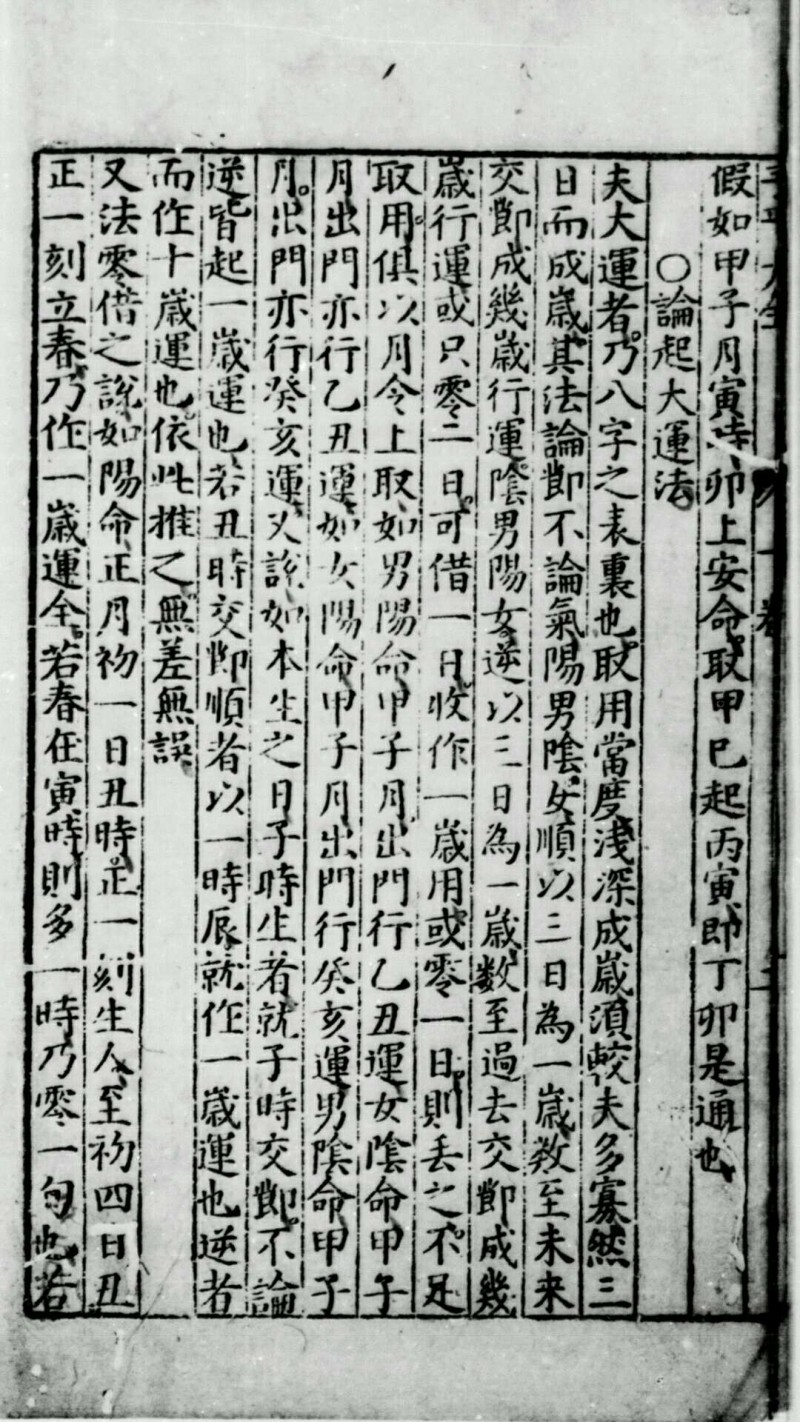 假如甲子月寅時卯上安命取甲己起丙寅即丁卯是通也
〇論起大運法
夫大運者乃八字之表裏也取用當度淺深成歲須較夫多寡然三
日而成歲其法論節不論氣陽男陰女順以三日為一歲数至未来
交節成幾歲行運陰男陽女逆以三日為一歲数至過去交節成幾
歲行運或只零二日可借一日收作一歲用或零一日則丟之不足
取用俱以月令上取如男陽命甲子月出門行乙丑運女陰命甲子
月出門亦行乙丑運如女陽命甲子月出門行癸亥運男陰命甲子
月出門亦行癸亥運又說如本生之日子時生者就子時交節不論
逆皆起一歲運也若丑時交節順者以一時辰就作一歲運也逆者
而作十歲運也依此推之無差無誤
又法零借之說如陽命正月初一日丑時正一刻生人至初四日丑
正一刻立春乃作一歲運全若春在寅時則多一時乃零一旬也若